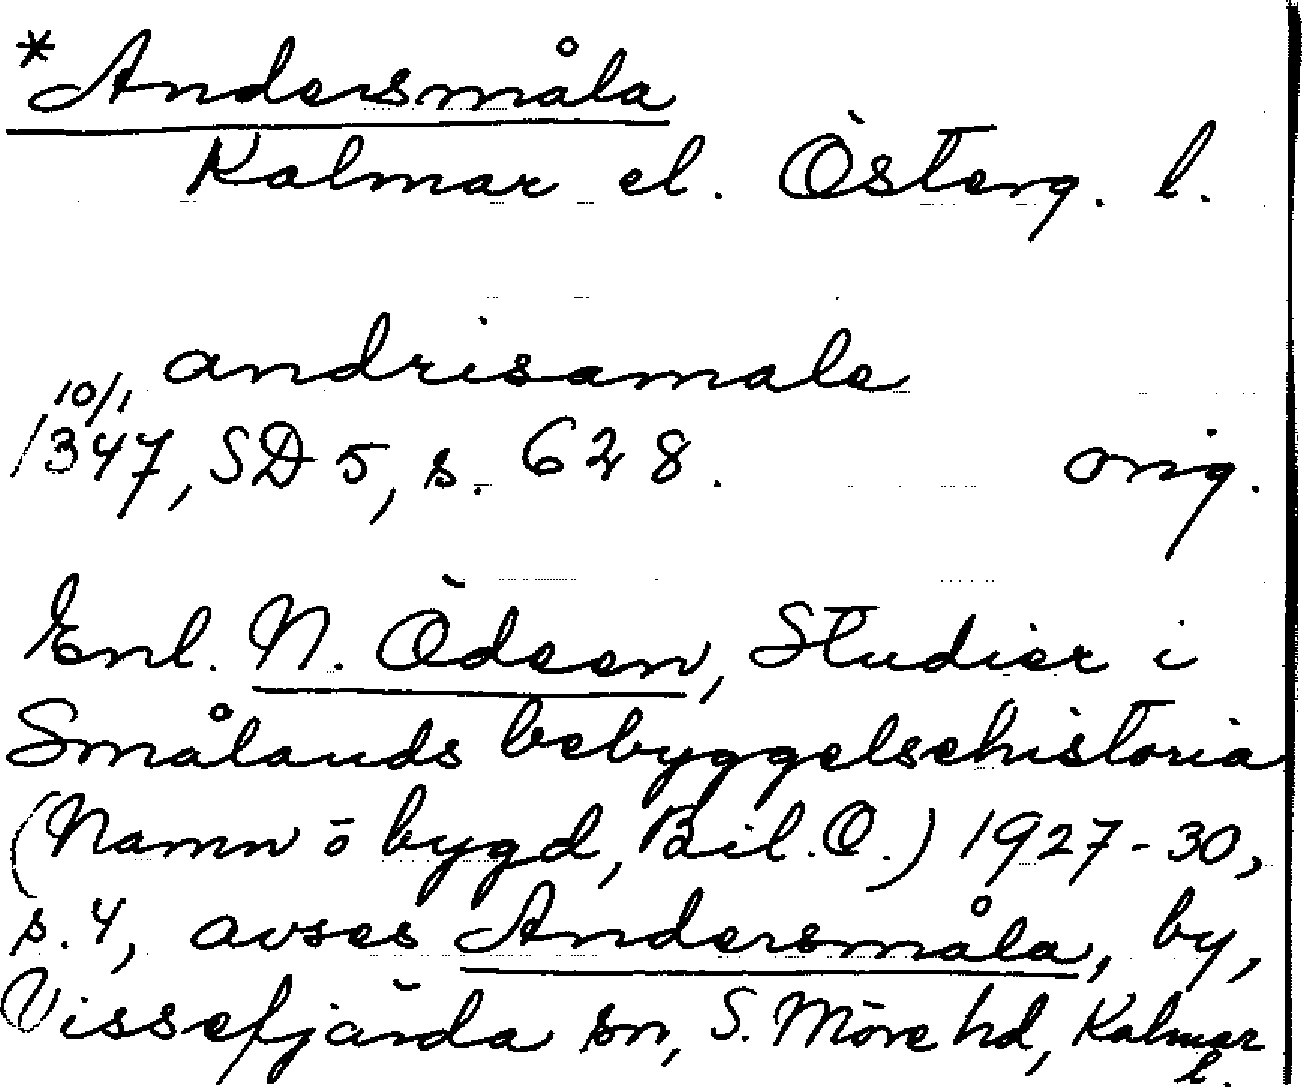 *Andersmåla
Kalmar el. Österg. l.
andrisamale
10/1
1347, SD 5, s. 628. orig.
Enl. N. Ödeen, Studier i
Smålands bebyggelsehistoria
(Namn o bygd, Bil. Q.) 1927-30,
s. 4, avses Andersmåla, by,
Vissefjärda sn, S. Möre hd, Kalmar
l.